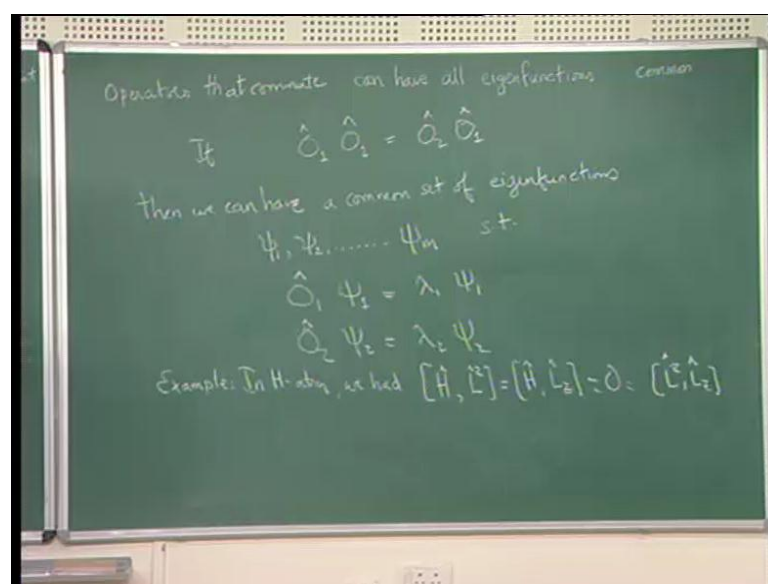 Operators that commute can have all eigenfunctions common
If Ô₁ Ô₁ = Ô₂ Ô₁
then we can have a common set of eigenfunctions
Ψ₁, Ψ₂, ....... Ψₘ s.t.
Ô₁ Ψ₁ = λ₁ Ψ₁
Ô₂ Ψ₂ = λ₂ Ψ₂
Example: In H-atom, we had [Ĥ, L̂²] = [Ĥ, L̂z] = 0 = [L̂², L̂z]